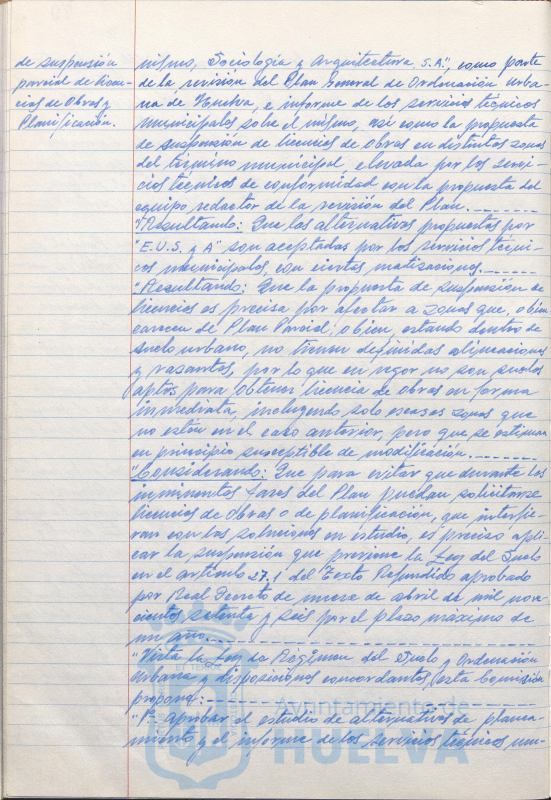 de suspensión
parcial de licen-
cias de Obras y
Planificación.
nismo, Sociología y Arquitectura, S.A", como parte
de la revisión del Plan General de Ordenación Urba-
na de Huelva, e informe de los servicios técnicos
municipales sobre el mismo, así como la propuesta
de suspensión de licencias de obras en distintas zonas
del término municipal elevada por los servi-
cios técnicos de conformidad con la propuesta del
equipo redactor de la revisión del Plan.
"Resultando: Que las alternativas propuestas por
"E.U.S. y A" son aceptadas por los servicios técni-
cos municipales, con ciertas matizaciones.
"Resultando: Que la propuesta de suspensión de
licencias es precisa por afectar a zonas que, o bien
carecen de Plan Parcial, o bien, estando dentro de
suelo urbano, no tienen definidas alineaciones
y rasantes, por lo que en rigor no son suelos
aptos para obtener licencia de obras en forma
inmediata, incluyendo solo escasas zonas que
no están en el caso anterior, pero que se estiman
en principio susceptible de modificación.
"Considerando: Que para evitar que durante las
inminentes fases del Plan puedan solicitarse
licencias de obras o de planificación, que interfie-
ran con las soluciones en estudio, es preciso apli-
car la suspensión que previene la Ley del Suelo
en el artículo 27.1 del Texto Refundido aprobado
por Real Decreto de nueve de abril de mil nove-
cientos setenta y seis por el plazo máximo de
un año.
"Vista la Ley de Régimen del Suelo y Ordenación
Urbana y disposiciones concordantes, esta Comisión
propone:
"1º aprobar el estudio de alternativas de planea-
miento y el informe de los servicios técnicos mu-
Ayuntamiento de
HUELVA